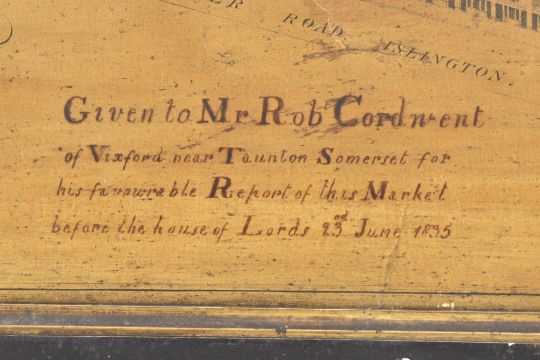 ER ROAD ISLINGTON.
Given to Mr Rob Cordwent
of Vixford near Taunton Somerset for
his favourable Report of this Market
before the house of Lords 23rd June 1835